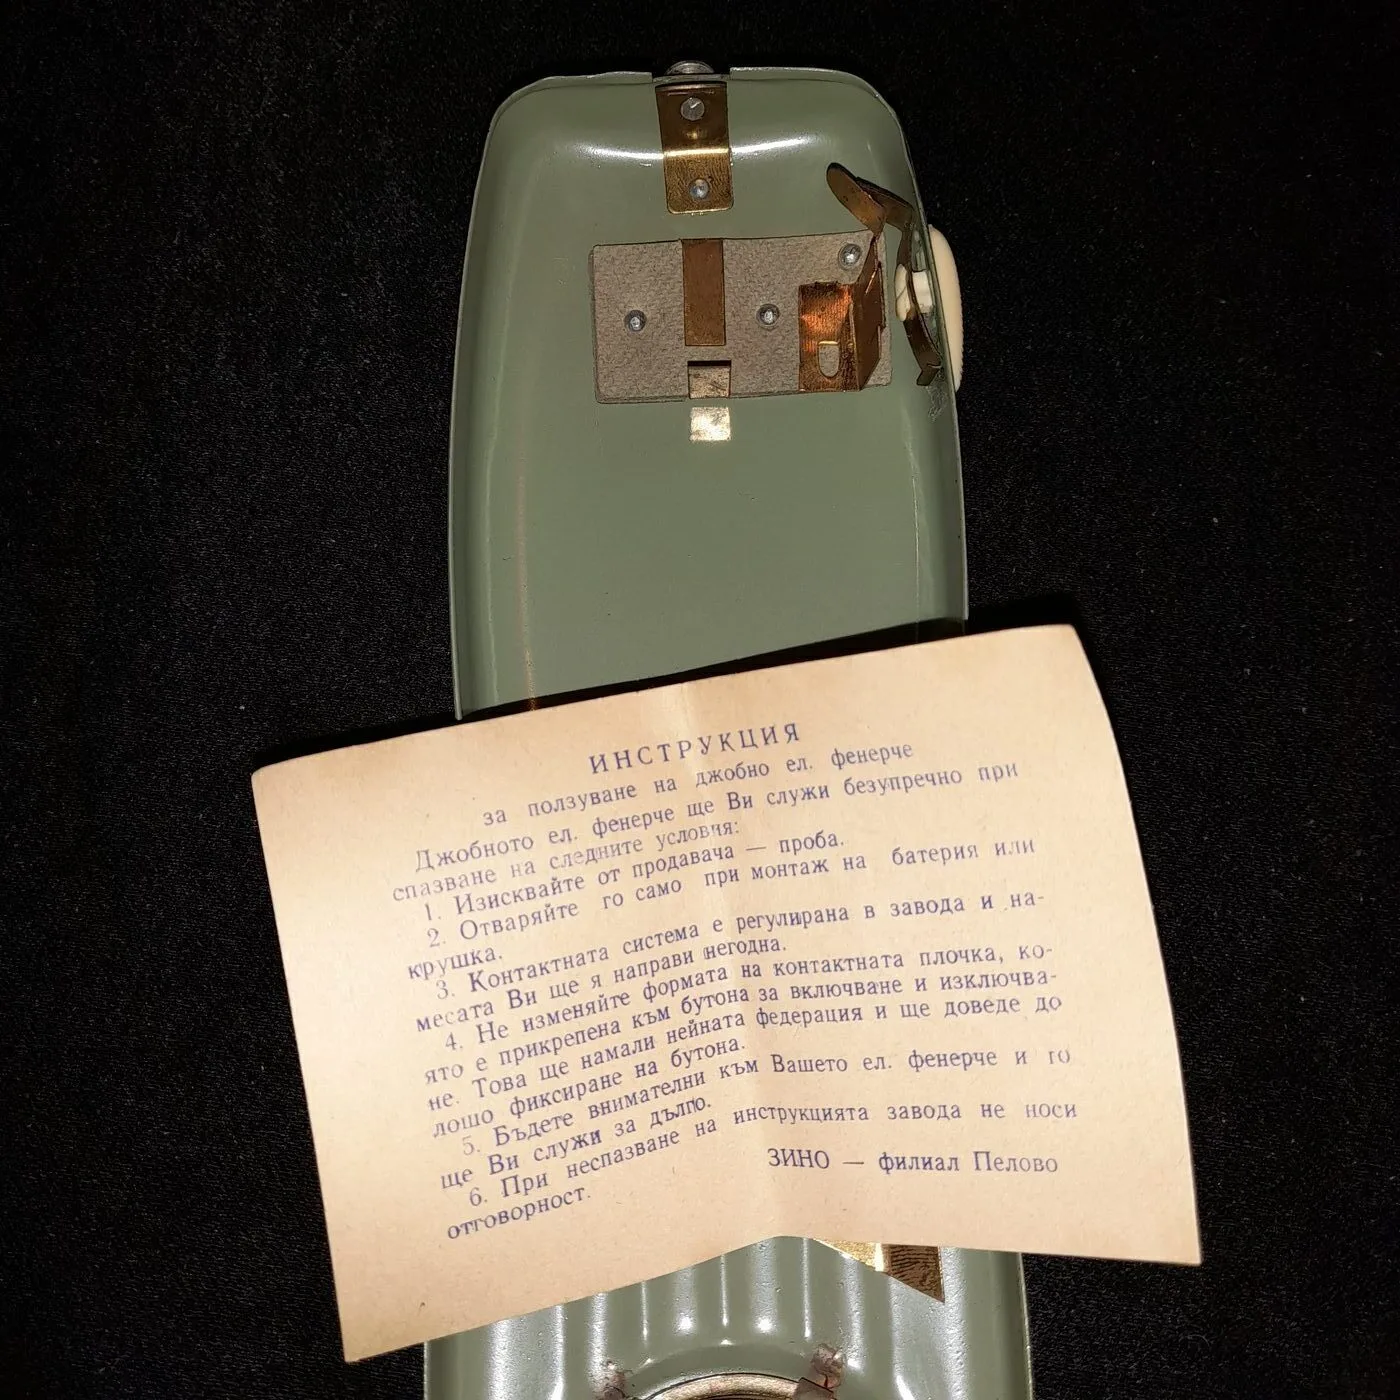 ИНСТРУКЦИЯ
за ползуване на джобно ел. фенерче
Джобното ел. фенерче ще Ви служи безупречно при
спазване на следните условия:
1. Изисквайте от продавача — проба.
2. Отваряйте го само при монтаж на батерия или
крушка.
3. Контактната система е регулирана в завода и на-
месата Ви ще я направи негодна.
4. Не изменяйте формата на контактната плочка, ко-
ято е прикрепена към бутона за включване и изключва-
не. Това ще намали нейната федерация и ще доведе до
лошо фиксиране на бутона.
5. Бъдете внимателни към Вашето ел. фенерче и го
ще Ви служи за дълго.
6. При неспазване на инструкцията завода не носи
отговорност.
ЗИНО — филиал Пелово